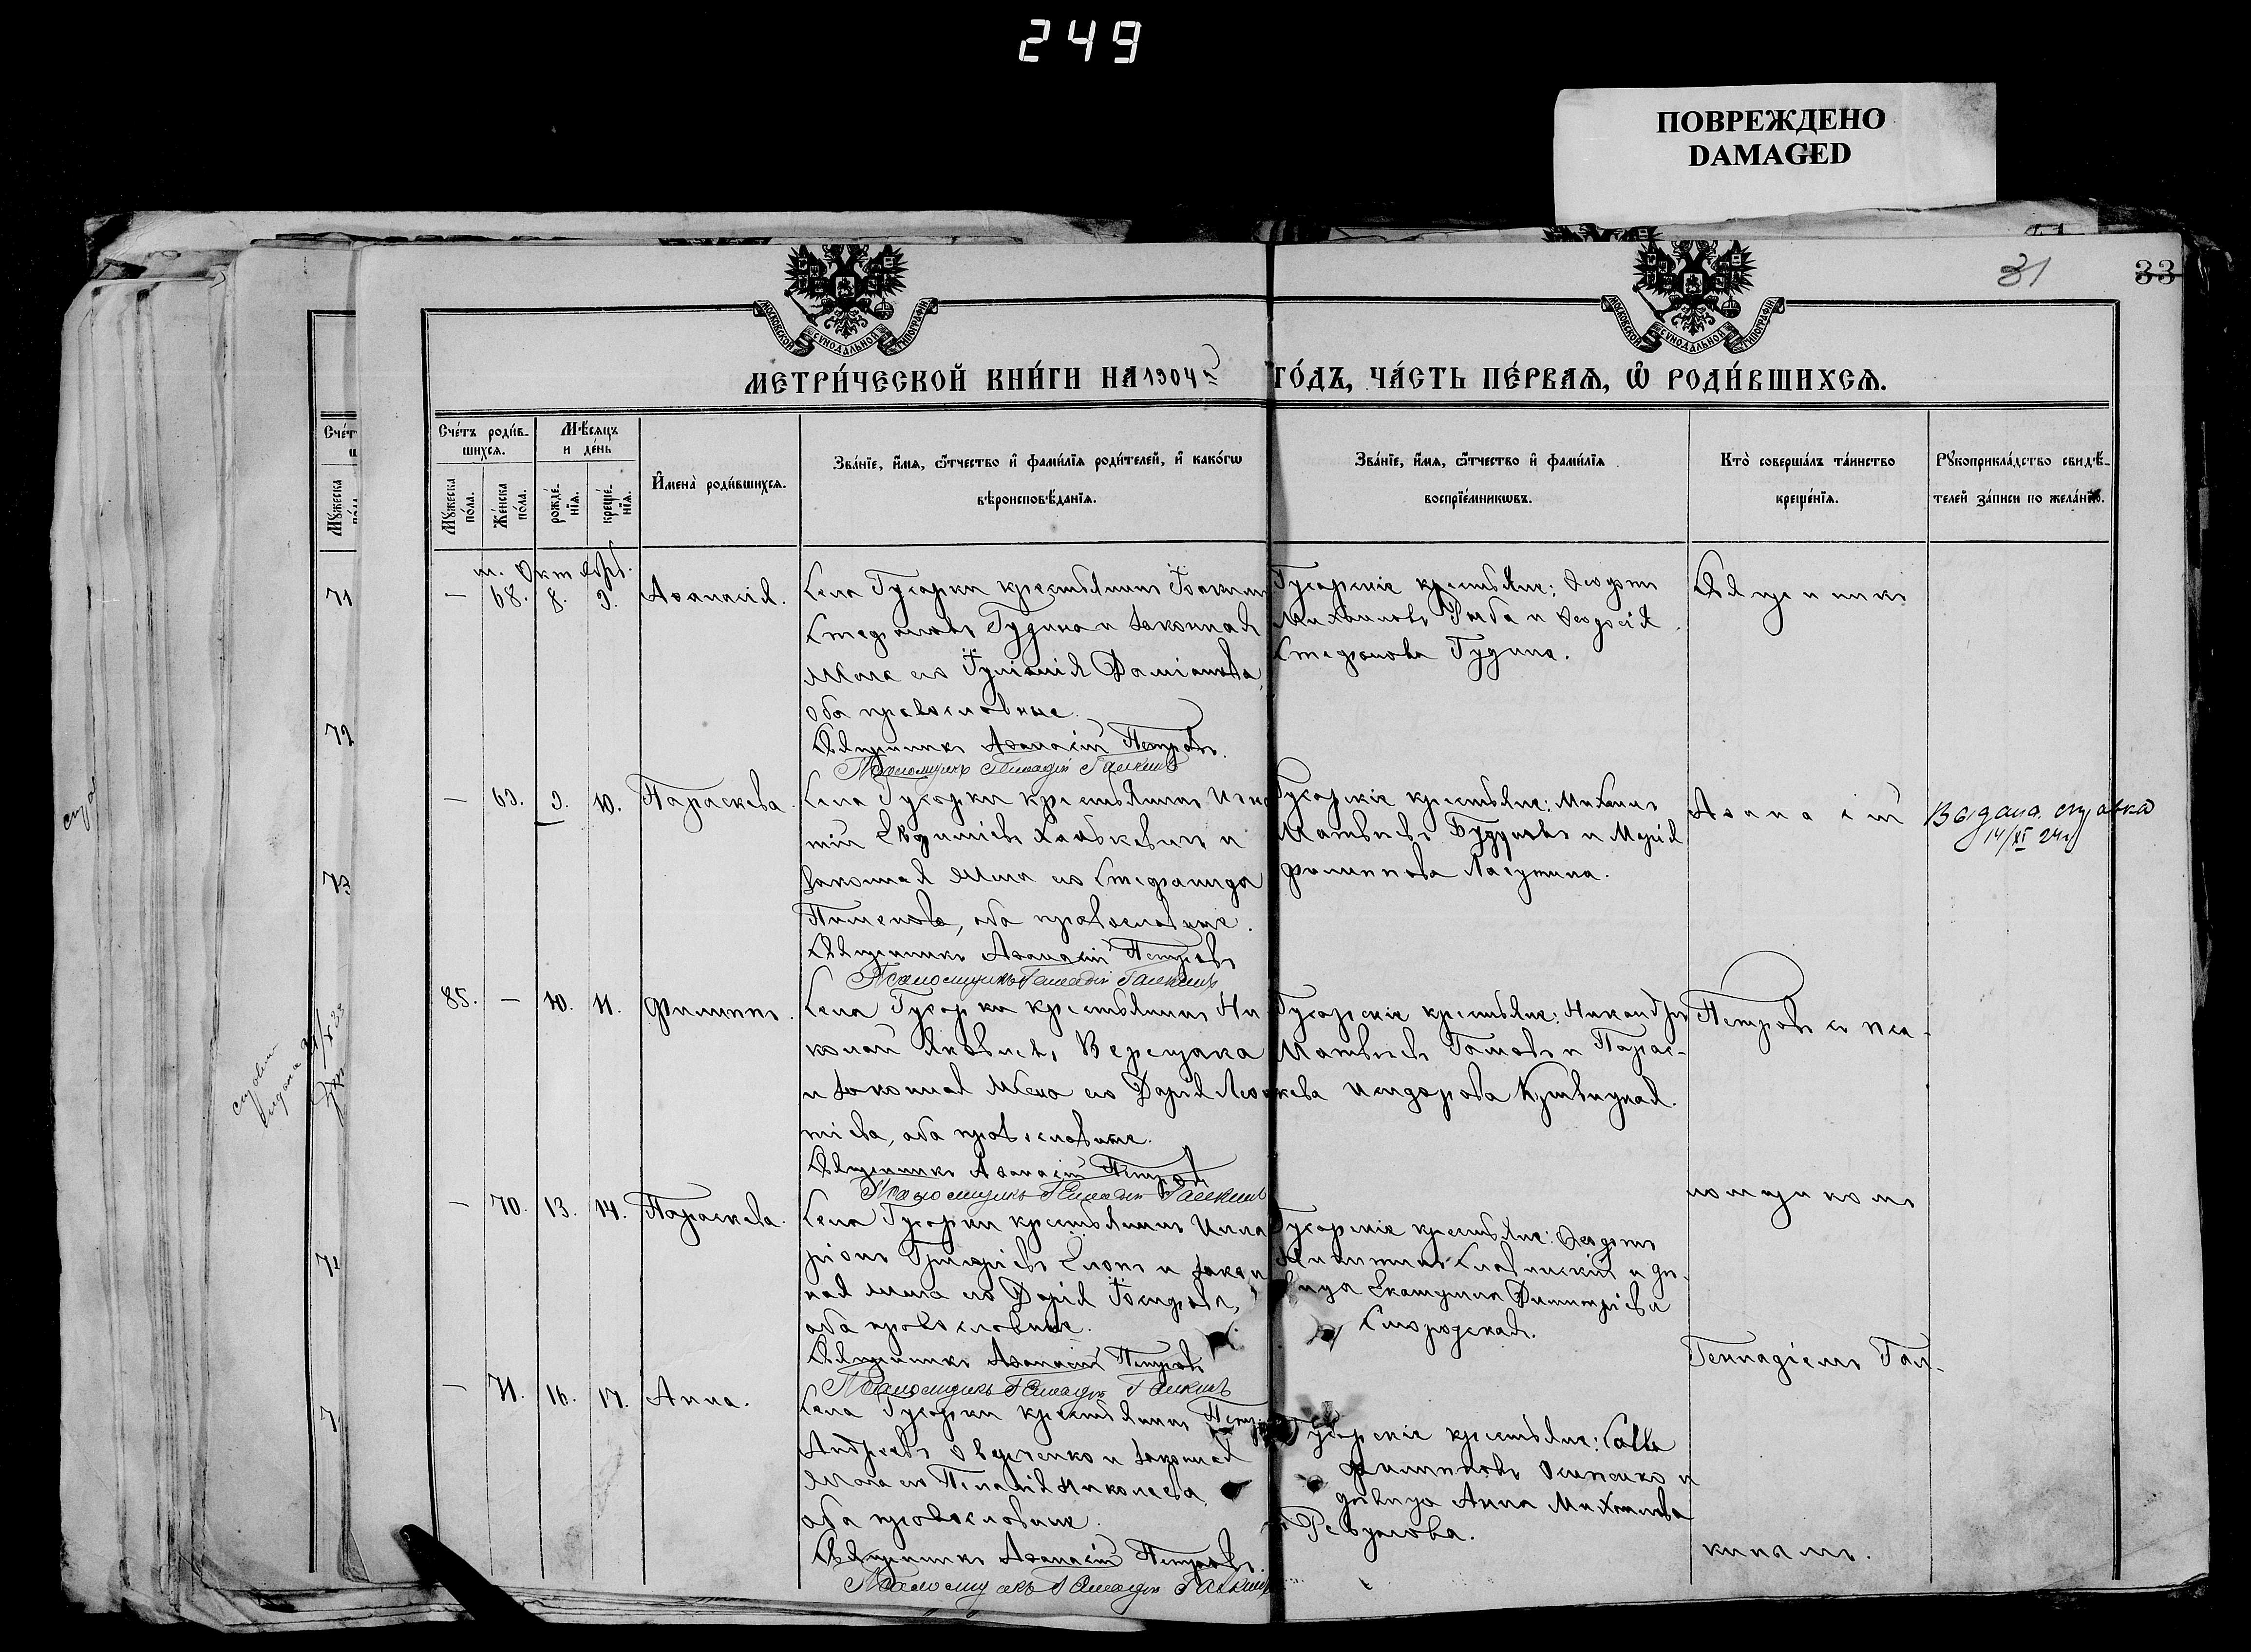 249
ПОВРЕЖДЕНО
DAMAGED
31
33
МОСКОВСКОЙ СѴНОДАЛЬНОЙ ТИПОГРАФИИ
МОСКОВСКОЙ СѴНОДАЛЬНОЙ ТИПОГРАФИИ
МЕТРИ́ЧЕСКОЙ КНИ́ГИ НА 1904 й ГО́ДЪ, ЧА́СТЬ ПЕ́РВАЯ, Ѡ҆ РОДИ́ВШИХСЯ.
Сче́тъ роди́в-
шихся.
Мѣ́сяцъ
и де́нь
Мꙋ́жеска по́ла.
Же́нска по́ла.
рожде́-нїя.
креще́-нїя.
И҆мена̀ роди́вшихся.
Зва́нїе, и҆́мя, ѻ҆́тчество и҆ фами́лїя роди́телей, и҆ како́гѡ
вѣроисповѣ́данїя.
Зва́нїе, и҆́мя, ѻ҆́тчество и҆ фами́лїя
воспрїе́мникѡвъ.
Кто̀ соверша́лъ та́инство
креще́нїя.
Рꙋкоприкла́дство свидѣ́-
телей за́писи по жела́нїю.
м. Октябрь.
— 68. 8. 9. Аѳанасія.
Села Гусарки крестьянинъ Іоакимъ
Стефановъ Гудина и законная
жена его Іуліанія Даміанова,
оба православные.
Священникъ Аѳанасій Петровъ.
Псаломщикъ Геннадій Галкинъ
Гусарскіе крестьяне: Ѳеодотъ
Михаиловъ Рыба и Ѳеодосія
Стефанова Гудина.
Священникъ
— 69. 9. 10. Параскева.
Села Гусарки крестьянинъ Игна-
тій Евфиміевъ Хаабкевичъ и
законная жена его Стефанида
Пименова, оба православные.
Священникъ Аѳанасій Петровъ
Псаломщикъ Геннадій Галкинъ
Гусарскіе крестьяне: Михаилъ
Матвѣевъ и Марія
Филиппова Ласутина.
Аѳанасій
Выдана справка
14/XI 24г
85. — 10. 11. Филиппъ.
Села Гусарки крестьянинъ Ни-
колай Яковлевъ Верещака
и законная жена его Дарія Леон-
тіева, оба православные.
Священникъ Аѳанасій Петровъ
Псаломщикъ Геннадій Галкинъ
Гусарскіе крестьяне: Никандръ
Матвѣевъ и Парас-
кева Исидорова
Петровъ съ пса-
— 70. 13. 14. Параскева.
Села Гусарки крестьянинъ Илла-
ріонъ Григоріевъ и закон-
ная жена его Дарія
оба православные.
Священникъ Аѳанасій Петровъ
Псаломщикъ Геннадій Галкинъ
Гусарскіе крестьяне: Ѳеодотъ
Никитинъ Славинскій и дѣ-
вица Екатерина Димитріева
Смородская.
ломщикомъ
Геннадіемъ Гал-
— 71. 16. 17. Анна.
Села Гусарки крестьянинъ Петръ
Андреевъ Овдеенко и законная
жена его Пелагія Николаева,
оба православные.
Священникъ Аѳанасій Петровъ.
Псаломщикъ Геннадій Галкинъ
Гусарскіе крестьяне: Савва
Филипповъ Осипенко и
дѣвица Анна Михаилова
Ревунова.
кинымъ.
Сче́т
Мꙋ́жеска
71
72
73
справка
выдана